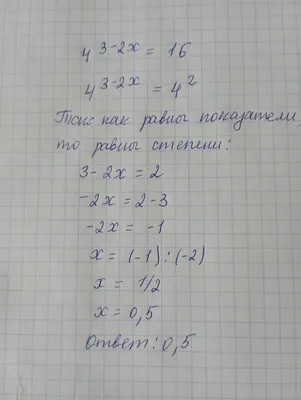 4^(3-2x) = 16
4^(3-2x) = 4^2
Так как равны показатели,
то равны степени:
3-2x = 2
-2x = 2-3
-2x = -1
x = (-1) : (-2)
x = 1/2
x = 0,5
Ответ: 0,5